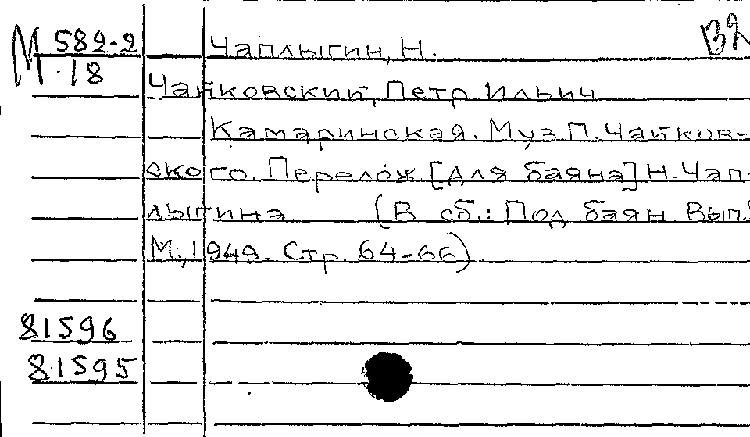 М 582-2
18
Чаплыгин, Н.
В2
Чайковский, Петр Ильич
Камаринская. Муз. П. Чайков-
ского. Перелож. [для баяна] Н. Чап-
лыгина (В сб.: Под баян. Вып.
М., 1949. Стр. 64-66)
81596
81595